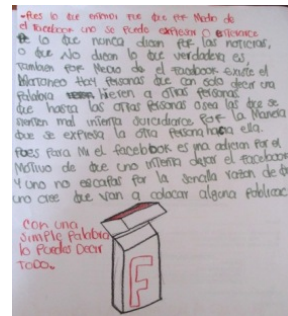 -Pues lo que entendi fue que por Medio de
el facebook uno se puede expresar o enterarse
de lo que nunca dicen por las noticias,
o que No dicen lo que verdadera es,
tambien por Medio de el facebook existe el
Hay personas que con solo decir una
palabra hieren a otras personas
que hasta las otras personas osea las que se
sienten mal intenta suicidarce por la Manera
que se expresa la otra persona hacia ella.
pues para Mi el facebook es una adicion por el
Motivo de que uno intenta dejar el facebook
Y uno no escapas por la sencilla razon de que
uno cree que van a colocar alguna publicac
con una
simple palabra
lo puedes Decir
TODO.
F